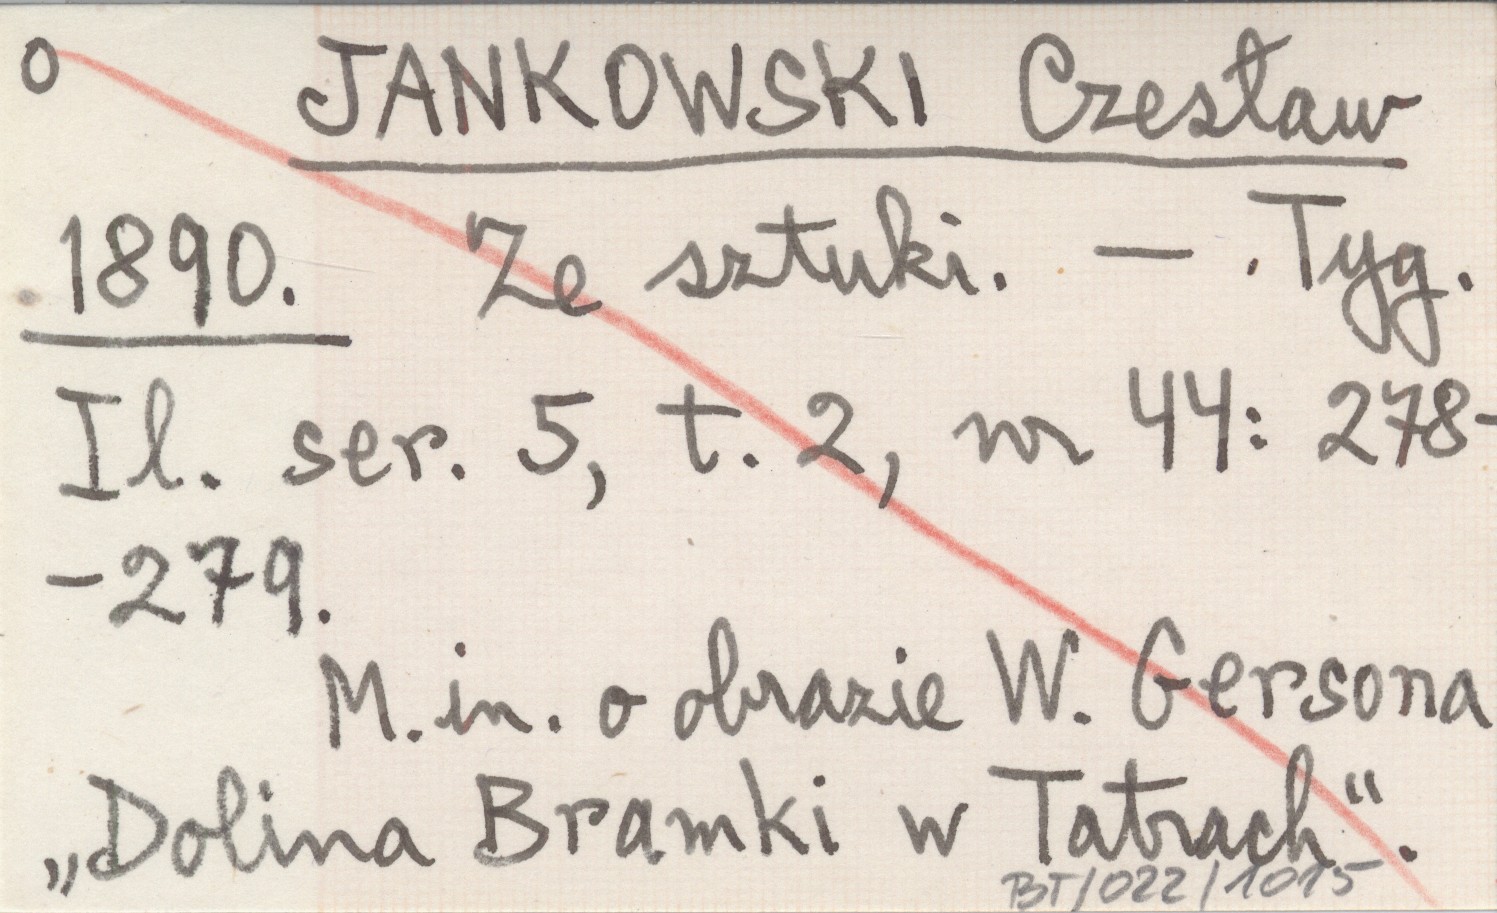 o JANKOWSKI Czesław
1890. Ze sztuki. — . Tyg.
Il. ser. 5, t. 2, nr 44: 278-
-279.
M. in. o obrazie W. Gersona
„Dolina Bramki w Tatrach“.
BT/022/1015